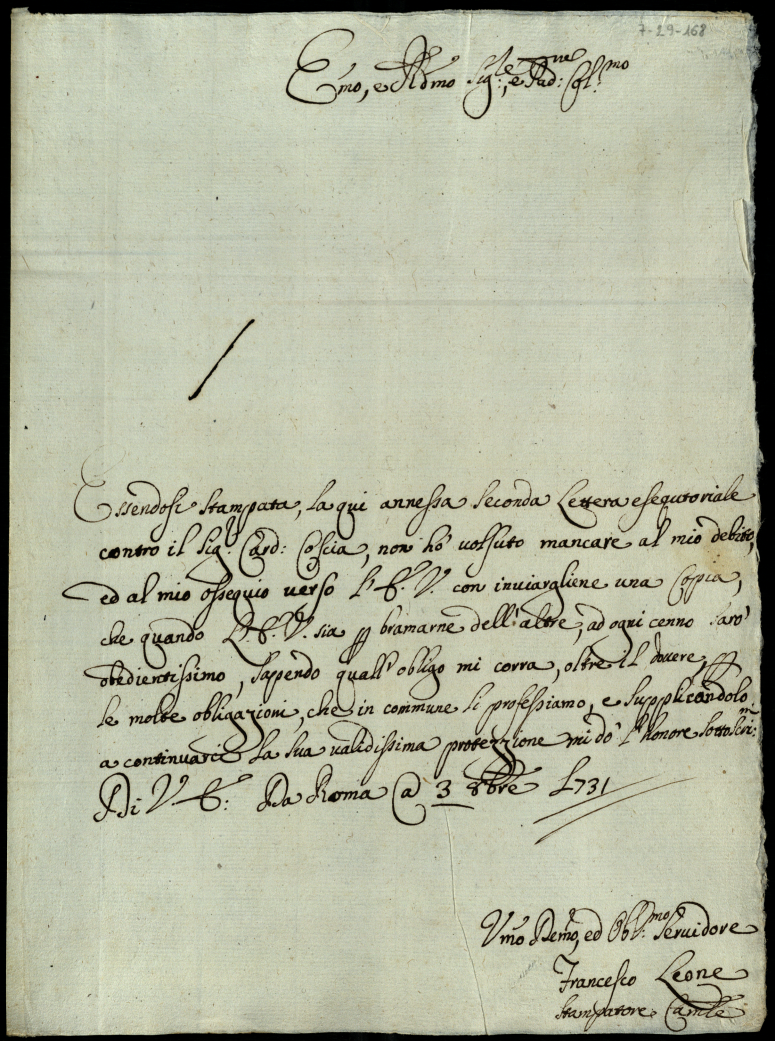 7-29-168
Emo, e Rdmo Sig:re, e Pad:ne Col:mo
Essendosi stampata, la qui annessa seconda Lettera esequtoriale
contro il Sig:r Card: Coscia, non hò volsuto mancare al mio debito,
ed al mio ossequio verso l'E. V. con inviargliene una Copia,
che quando l'E. V. sia p bramarne dell'altre, ad ogni cenno sarò
obedientissimo, sapendo quall'obligo mi corra, oltre il dovere, p
le molte obligazioni, che in commune li professiamo, e supplicandolo
a continuarci la sua validissima protezzione mi dò l'honore sottoscri:mi
Di V. E: Da Roma a 3 8bre 1731
Vmo Demo, ed Obl:mo Servidore
Francesco Leone
Stampatore Camle